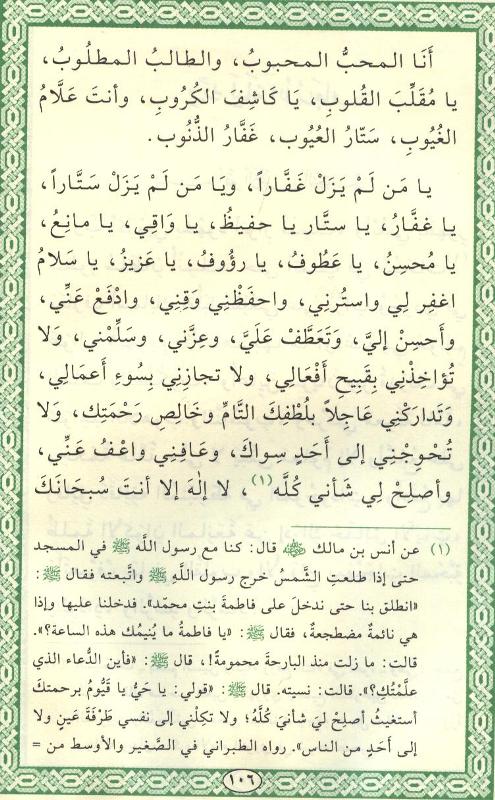 أَنَا المحبُّ المحبوبُ، والطالبُ المطلُوبُ،
يا مُقَلِّبَ القُلوبِ، يَا كَاشِفَ الكُروبِ، وأنتَ عَلَّامُ
الغُيُوبِ، سَتّارُ العُيُوب، غَفَّارُ الذُّنُوب.
يا مَن لَمْ يَزَلْ غَفَّاراً، ويَا مَن لَمْ يَزَلْ سَتَّاراً،
يا غفَّارُ، يا ستَّار يا حفيظُ، يا وَاقِي، يا مانِعُ،
يا مُحسِنُ، يا عَطُوفُ، يا رؤُوفُ، يا عَزيزُ، يا سَلامُ
اغفِر لِي واستُرنِي، واحفَظْنِي وَقِنِي، وادْفَعْ عَنِّي،
وأَحسِنْ إليَّ، وَتَعَطَّفْ عَلَيَّ، وعِزَّني، وسَلِّمْني، وَلا
تُؤَاخِذْنِي بِقَبِيحِ أَفْعَالِي، ولا تجازِنِي بِسُوءِ أَعمَالِي،
وَتَدَارَكْنِي عَاجِلاً بِلُطْفِكَ التَّامِّ وخَالِصِ رَحْمَتِك، وَلا
تُحْوِجْنِي إلى أَحَدٍ سِواكَ، وعَافِني واعْفُ عَنِّي،
وأصلِحْ لِي شَأني كُلَّه(١)، لا إلٰهَ إلا أنتَ سُبحَانَكَ
(١) عن أنس بن مالك رضي الله عنه قال: كنا مع رسول اللَّه ﷺ في المسجد
حتى إذا طلعتِ الشَّمسُ خرج رسول اللَّهِ ﷺ واتَّبعته فقال ﷺ:
«انطلق بنا حتى ندخلَ على فاطمةَ بنتِ محمّد». فدخلنا عليها وإذا
هي نائمةٌ مضطجعةٌ، فقال ﷺ: «يا فاطمةُ ما يُنيمُك هذه الساعة؟».
قالت: ما زلت منذ البارحة محمومةً!، قال ﷺ: «فأين الدُّعاء الذي
علَّمْتُكِ؟». قالت: نسيته. قال ﷺ: «قولي: يا حَيُّ يا قَيُّومُ برحمتكَ
أستغيثُ أصلِحْ ليَ شأنيَ كُلَّهُ؛ ولا تكِلْني إلى نفسي طَرْفَةَ عَينٍ ولا
إلى أَحَدٍ من الناس». رواه الطبراني في الصَّغير والأوسط من =
١٠٦